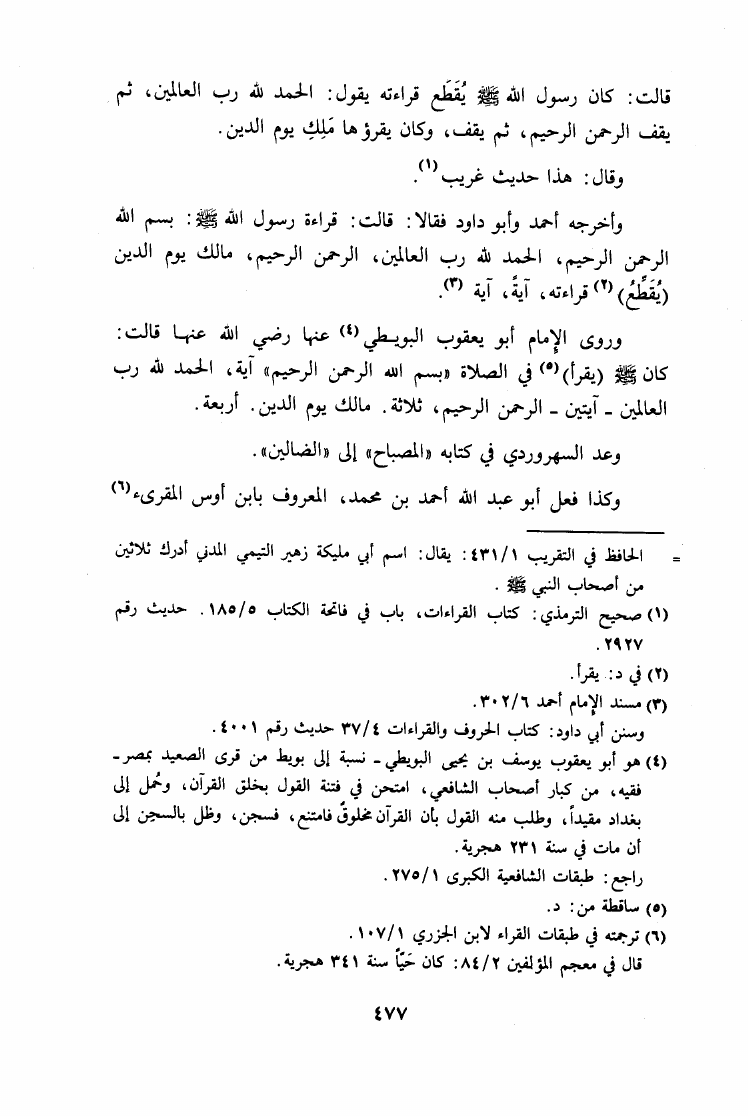 قالت: كان رسول الله ﷺ يُقَطِّع قراءته يقول: الحمد لله رب العالمين، ثم
يقف الرحمن الرحيم، ثم يقف، وكان يقرؤها مَلِكِ يوم الدين.
وقال: هذا حديث غريب(١).
وأخرجه أحمد وأبو داود فقالا: قالت: قراءة رسول الله ﷺ: بسم الله
الرحمن الرحيم، الحمد لله رب العالمين، الرحمن الرحيم، مالك يوم الدين
(يُقَطِّعُ)(٢) قراءته، آيةً، آية (٣).
وروى الإمام أبو يعقوب البويطي(٤) عنها رضي الله عنها قالت:
كان ﷺ (يقرأ)(٥) في الصلاة «بسم الله الرحمن الرحيم» آية، الحمد لله رب
العالمين ـ آيتين ـ الرحمن الرحيم، ثلاثة. مالك يوم الدين. أربعة.
وعد السهروردي في كتابه «المصباح» إلى «الضالين».
وكذا فعل أبو عبد الله أحمد بن محمد، المعروف بابن أوس المقرىء(٦)
= الحافظ في التقريب ٤٣١/١: يقال: اسم أبي مليكة زهير التيمي المدني أدرك ثلاثين
من أصحاب النبي ﷺ .
(١) صحيح الترمذي: كتاب القراءات، باب في فاتحة الكتاب ١٨٥/٥. حديث رقم
٢٩٢٧.
(٢) في د: يقرأ.
(٣) مسند الإمام أحمد ٣٠٢/٦.
وسنن أبي داود: كتاب الحروف والقراءات ٣٧/٤ حديث رقم ٤٠٠١.
(٤) هو أبو يعقوب يوسف بن يحيى البويطي ـ نسبة إلى بويط من قرى الصعيد بمصر ـ
فقيه، من كبار أصحاب الشافعي، امتحن في فتنة القول بخلق القرآن، وحُمل إلى
بغداد مقيداً، وطلب منه القول بأن القرآن مخلوقٌ فامتنع، فسجن، وظل بالسجن إلى
أن مات في سنة ٢٣١ هجرية.
راجع: طبقات الشافعية الكبرى ٢٧٥/١.
(٥) ساقطة من: د.
(٦) ترجمته في طبقات القراء لابن الجزري ١٠٧/١.
قال في معجم المؤلفين ٨٤/٢: كان حَيّاً سنة ٣٤١ هجرية.
٤٧٧